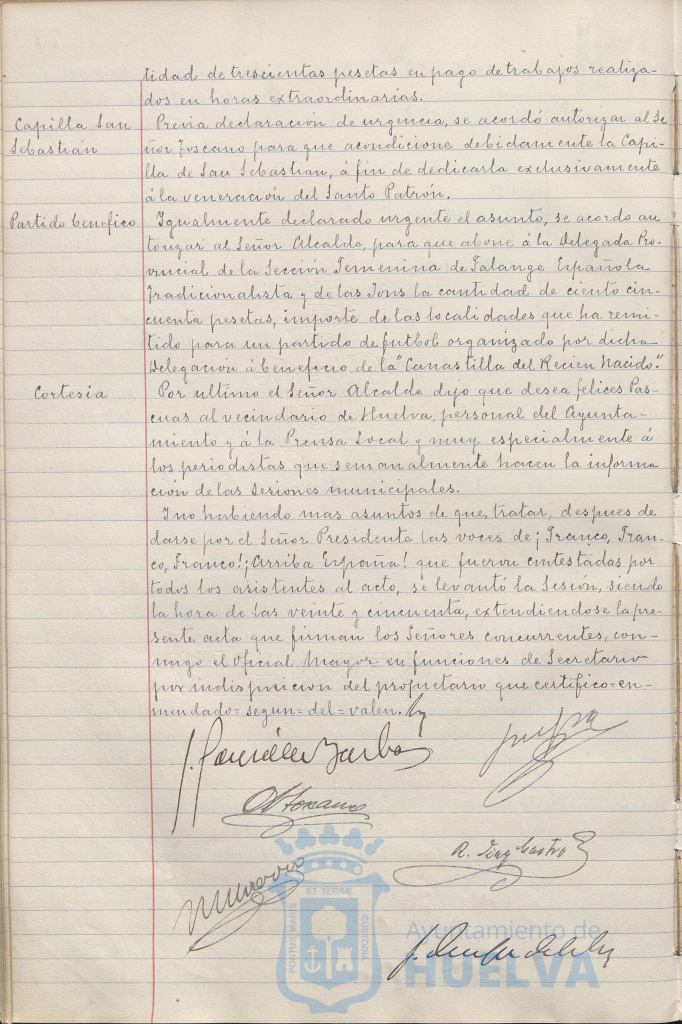 tidad de trescientas pesetas en pago de trabajos realiza-
dos en horas extraordinarias.
Capilla San
Sebastián
Previa declaración de urgencia, se acordó autorizar al Se
ñor Toscano para que acondicione debidamente la Capi-
lla de San Sebastian, á fin de dedicarla exclusivamente
á la veneración del Santo Patrón.
Partido benefico
Igualmente declarado urgente el asunto, se acordo au
torizar al Señor Alcalde, para que abone á la Delegada Pro-
vincial de la Sección Femenina de Falange Española
Tradicionalista y de las Jons la cantidad de ciento cin-
cuenta pesetas, importe de las localidades que ha remi-
tido para un partido de futbol organizado por dicha
Delegación á beneficio de la "Canastilla del Recien Nacido".
Cortesia
Por ultimo el Señor Alcalde dijo que desea felices Pas-
cuas al vecindario de Huelva, personal del Ayunta-
miento y á la Prensa Local y muy especialmente á
los periodistas que semanalmente hacen la informa
ción de las sesiones municipales.
Y no habiendo mas asuntos de que tratar, despues de
darse por el Señor Presidente las voces de ¡Franco, Fran-
co, Franco! ¡Arriba España! que fueron contestadas por
todos los asistentes al acto, se levantó la Sesión, siendo
la hora de las veinte y cincuenta, extendiendose la pre-
sente acta que firman los Señores concurrentes, con-
migo el Oficial Mayor en funciones de Secretario
por indisposicion del propietario que certifico=en-
mendado=segun=del=valen.
R. Diaz Castro
ET TERRÆ
PORTUS MARIS
CUSTODIA
Ayuntamiento de
HUELVA